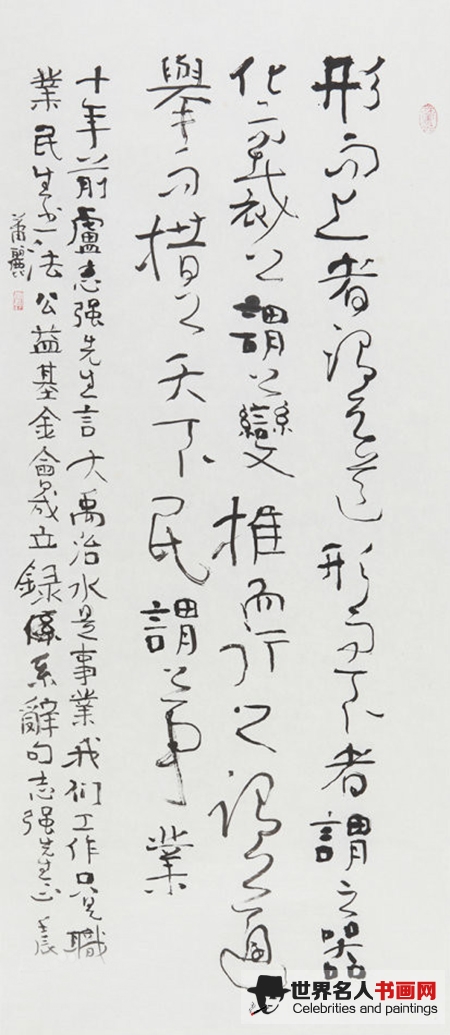 形而上者谓之道形而下者謂之器
化而裁之謂之變推而行之谓之通
舉而措之天下民謂之事業
十年前盧志强先生言大禹治水是事業我们工作只是職
業民生书法公益基金會成立録係系辭句志强先生正壬辰
蕭麗
世界名人书画网
Celebrities and paintings